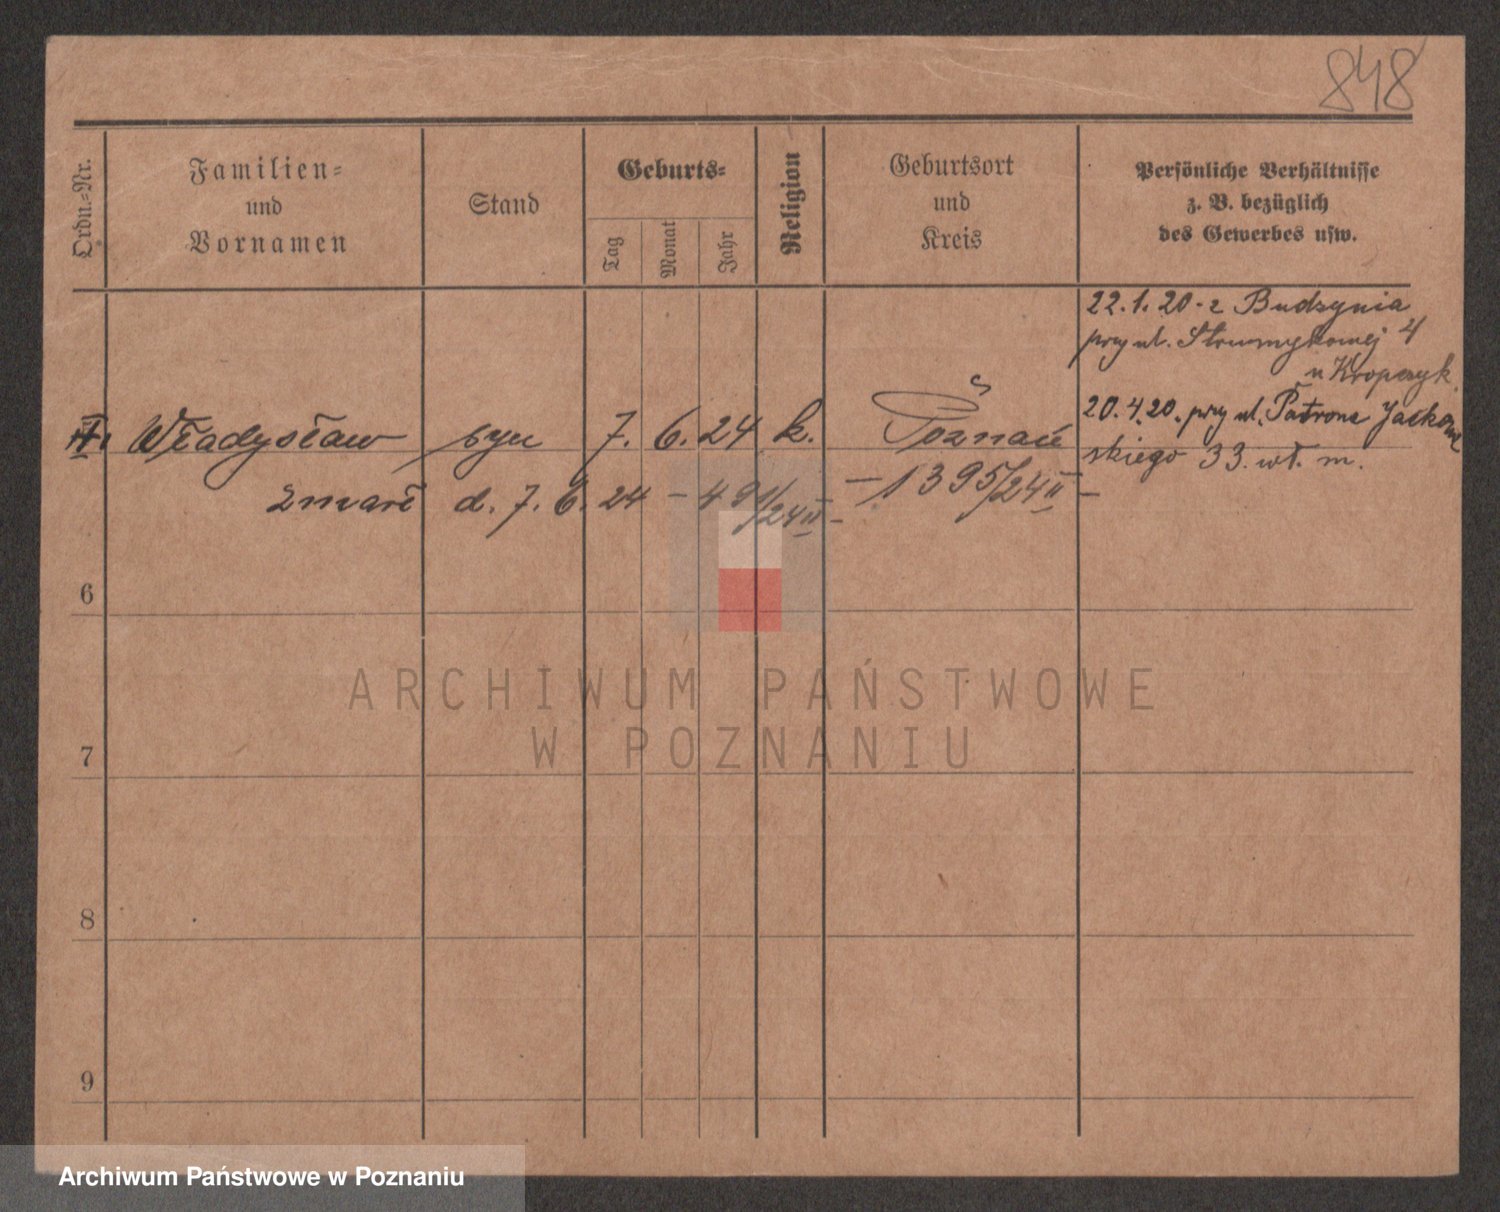 848
Ordn.-Nr.
Familien-
und
Vornamen
Stand
Geburts-
Tag
Monat
Jahr
Religion
Geburtsort
und
Kreis
Persönliche Verhältnisse
z. B. bezüglich
des Gewerbes usw.
22.1.20 - z Budzynia
przy ul. Strumykowej 4
u Kropczyk.
20.4.20. przy ul. Patrona Jackow
skiego 33. wł. m.
Władysław syn 7. 6. 24 k. Poznań
zmarł d. 7. 6. 24 - 491/24 II - - 1395/24 II -
6
7
8
9
ARCHIWUM PAŃSTWOWE
W POZNANIU
Archiwum Państwowe w Poznaniu